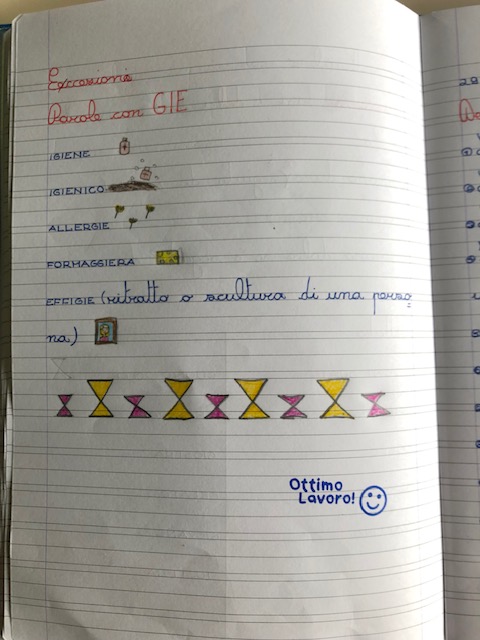 Eccezioni
Parole con GIE
IGIENE
IGIENICO
ALLERGIE
FORMAGGIERA
EFFIGIE (ritratto o scultura di una perso
na)
Ottimo
Lavoro!
28